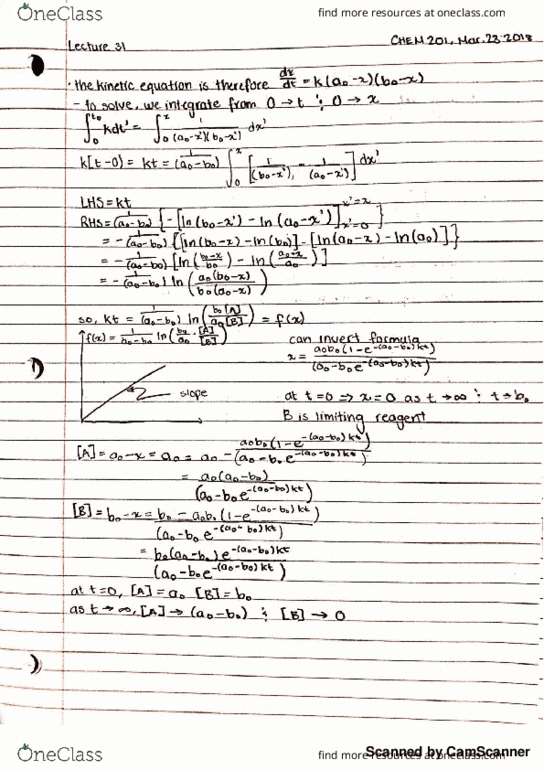 OneClass
find more resources at oneclass.com
Lecture 31
CHEM 201, Mar. 23 2018
· the kinetic equation is therefore dx/dt = k(a₀-x)(b₀-x)
- to solve, we integrate from 0→t ; 0→x
∫₀^t₀ kdt' = ∫₀^x 1/((a₀-x')(b₀-x')) dx'
k[t-0) = kt = 1/(a₀-b₀) ∫₀^x [1/(b₀-x') - 1/(a₀-x')] dx'
LHS = kt
RHS = 1/(a₀-b₀) {-[ln(b₀-x') - ln(a₀-x')]_{x'=0}^{x'=x}}
= - 1/(a₀-b₀) {[ln(b₀-x) - ln(b₀)] - [ln(a₀-x) - ln(a₀)]}
= - 1/(a₀-b₀) [ln((b₀-x)/b₀) - ln((a₀-x)/a₀)]
= - 1/(a₀-b₀) ln(a₀(b₀-x)/b₀(a₀-x))
so, kt = 1/(a₀-b₀) ln(b₀[A]/a₀[B]) = f(x)
f(x) = 1/(a₀-b₀) ln(b₀/a₀ · [A]/[B])
slope
can invert formula
x = a₀b₀(1-e^-(a₀-b₀)kt)/(a₀-b₀e^-(a₀-b₀)kt)
at t=0 ⇒ x=0 as t→∞ ; t→b₀
B is limiting reagent
[A] = a₀-x = a₀ = a₀ - a₀b₀(1-e^-(a₀-b₀)kt)/(a₀-b₀e^-(a₀-b₀)kt)
= a₀(a₀-b₀)/(a₀-b₀e^-(a₀-b₀)kt)
[B] = b₀-x = b₀ - a₀b₀(1-e^-(a₀-b₀)kt)/(a₀-b₀e^-(a₀-b₀)kt)
= b₀(a₀-b₀)e^-(a₀-b₀)kt/(a₀-b₀e^-(a₀-b₀)kt)
at t=0, [A]=a₀ [B]=b₀
as t→∞, [A]→(a₀-b₀) ; [B]→0
OneClass
find more resources at oneclass.com
Scanned by CamScanner